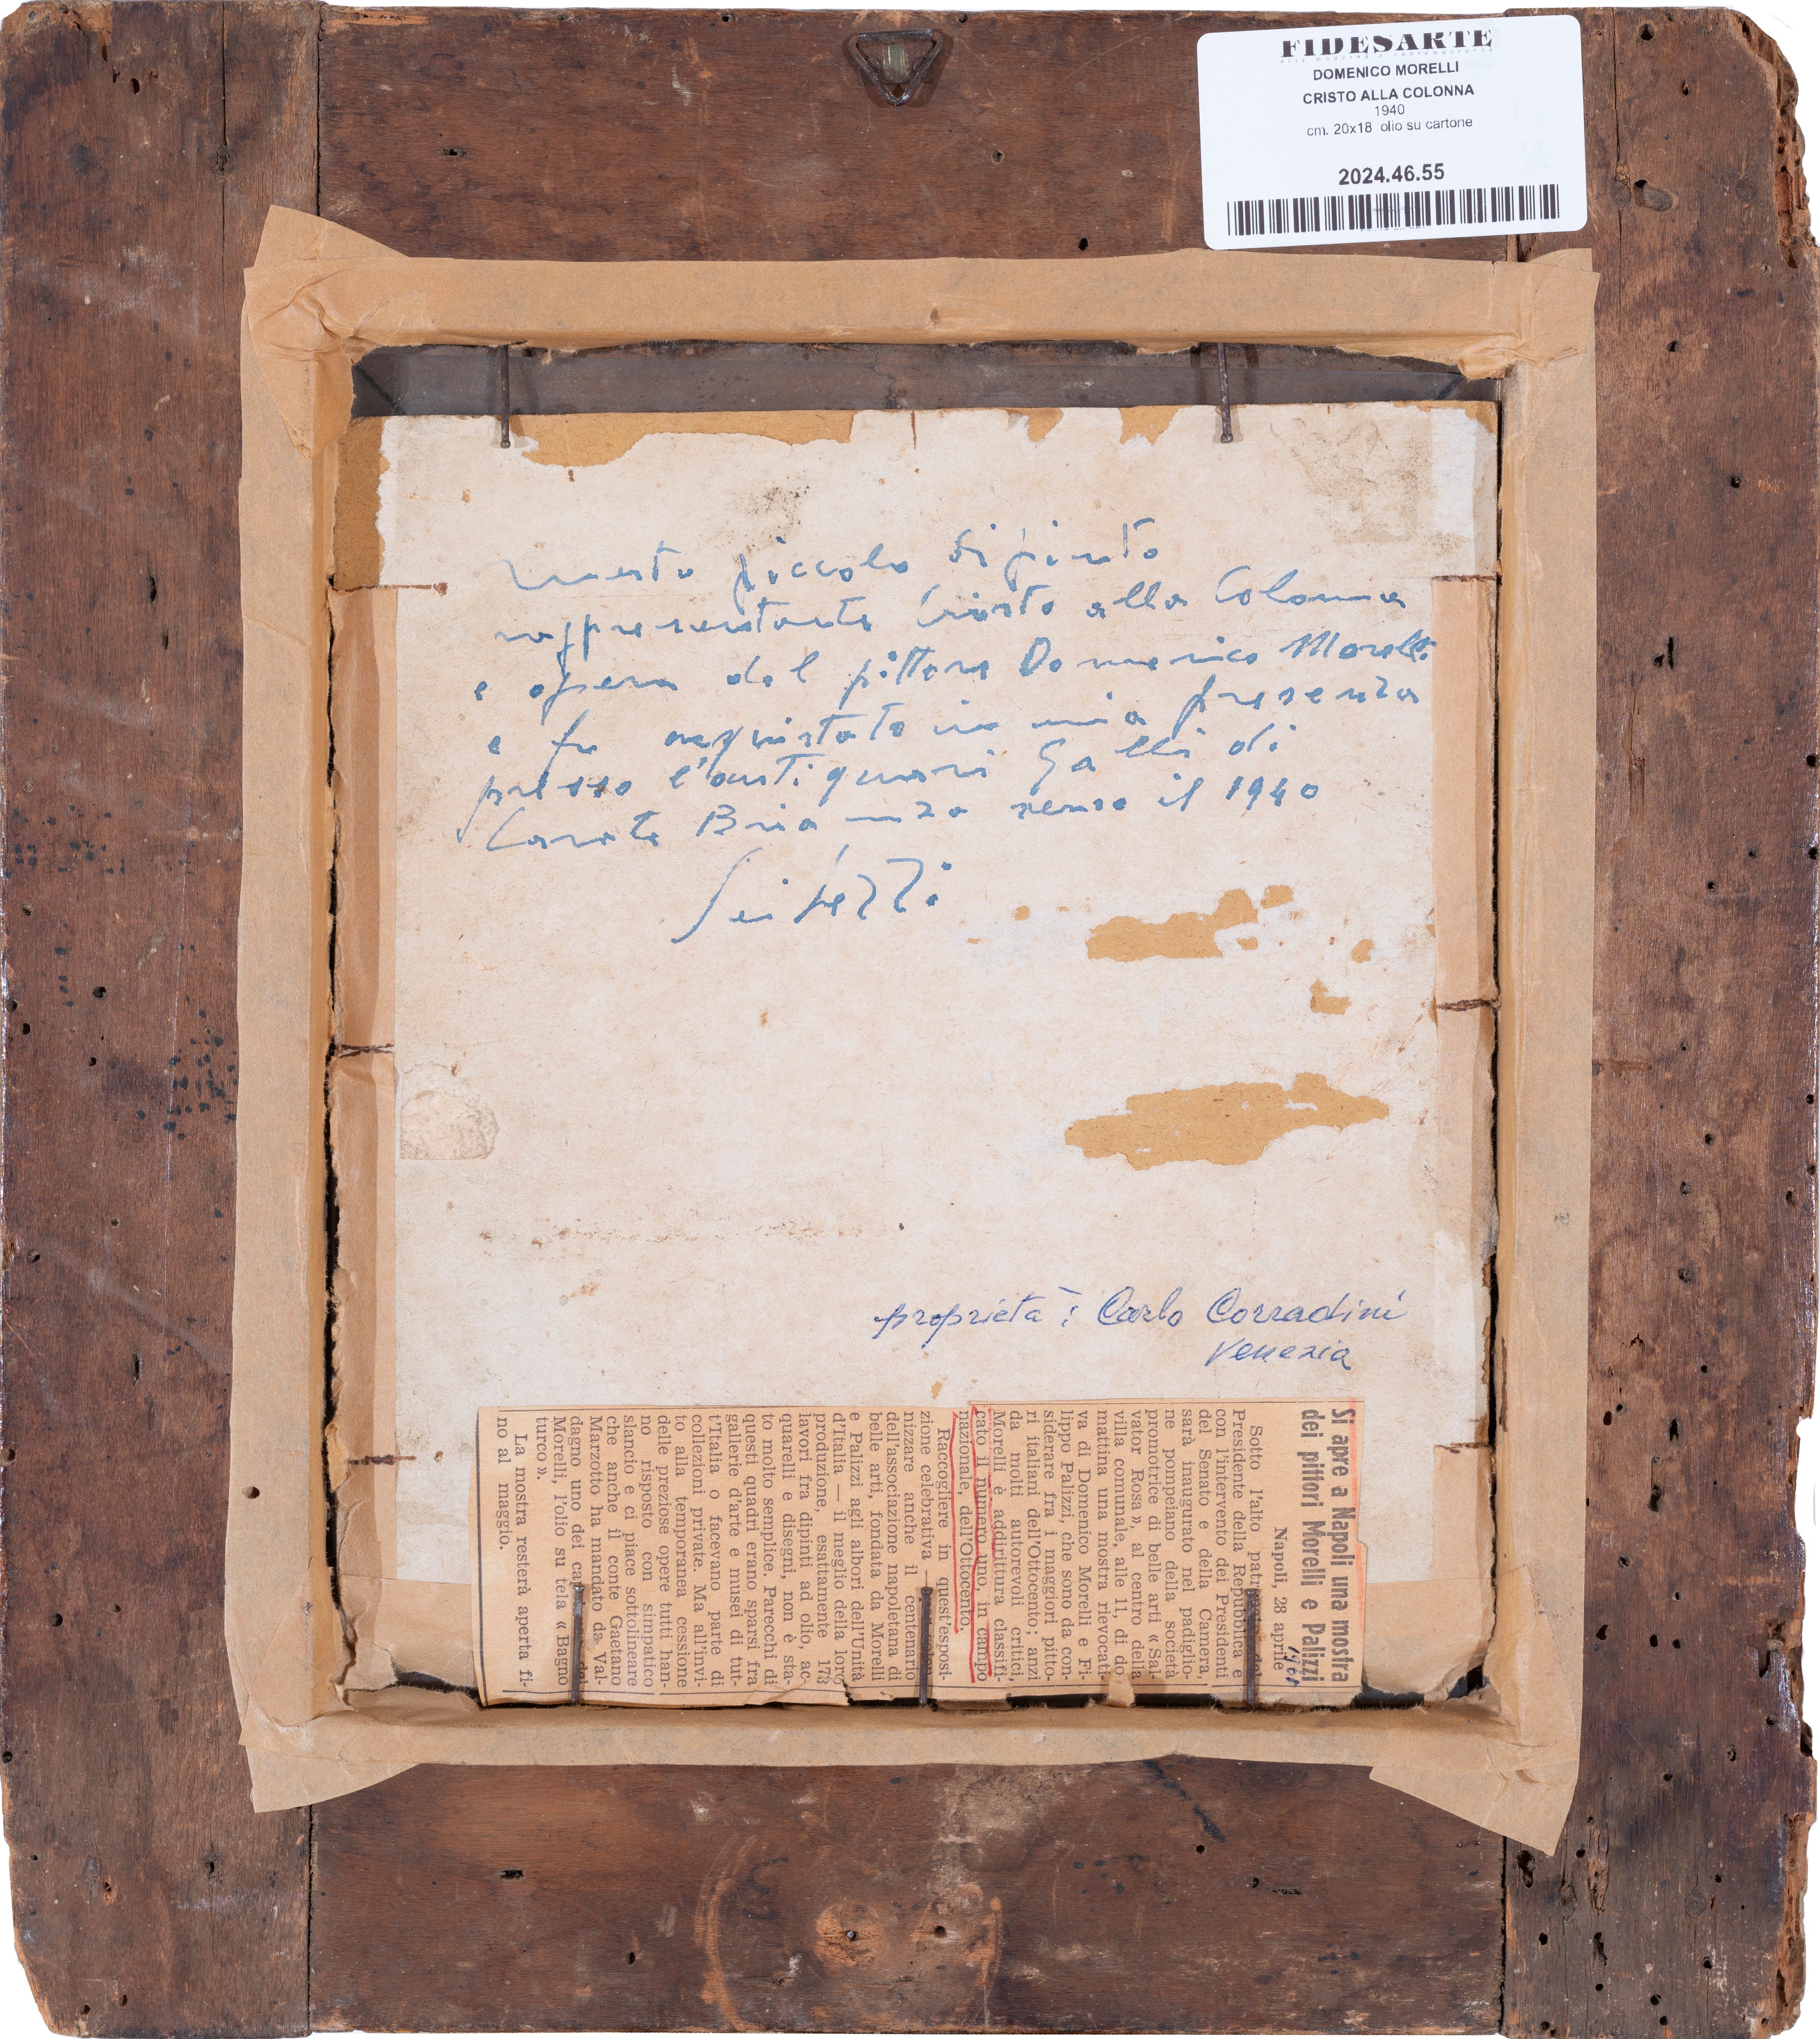 FIDESARTE
DOMENICO MORELLI
CRISTO ALLA COLONNA
1940
cm. 20x18 olio su cartone
2024.46.55
Questo piccolo dipinto
rappresentante Cristo alla Colonna
e opera del pittore Domenico Morelli
e fu acquistato in mia presenza
presso l'antiquari Galli di
Carate Brianza verso il 1940
proprietà: Carlo Corradini
Venezia
Si apre a Napoli una mostra
dei pittori Morelli e Palizzi
Napoli, 28 aprile
Sotto l'alto del
Presidente della Repubblica e
con l'intervento dei Presidenti
del Senato e della Camera,
sarà inaugurato nel padiglio-
ne pompeiano della società
promotrice di belle arti « Sal-
vator Rosa », al centro della
villa comunale, alle 11, di do
mattina una mostra rievocati
va di Domenico Morelli e Fi-
lippo Palizzi, che sono da con-
siderare fra i maggiori pitto-
ri italiani dell'Ottocento; anzi
da molti autorevoli critici,
Morelli è addirittura classifi-
cato il numero uno, in campo
nazionale, dell'Ottocento.
Raccogliere in quest'esposi-
zione celebrativa —
nizzare anche il centenario
dell'associazione napoletana di
belle arti, fondata da Morelli
e Palizzi agli albori dell'Unità
d'Italia — il meglio della loro
produzione, esattamente 173
lavori fra dipinti ad olio, ac-
quarelli e disegni, non è sta-
to molto semplice. Parecchi di
questi quadri erano sparsi fra
gallerie d'arte e musei di tut-
t'Italia o facevano parte di
collezioni private. Ma all'invi-
to alla temporanea cessione
delle preziose opere tutti han-
no risposto con simpatico
slancio e ci piace sottolineare
che anche il conte Gaetano
Marzotto ha mandato da Val-
dagno uno dei del
Morelli, l'olio su tela « Bagno
turco ».
La mostra resterà aperta fi-
no al maggio.